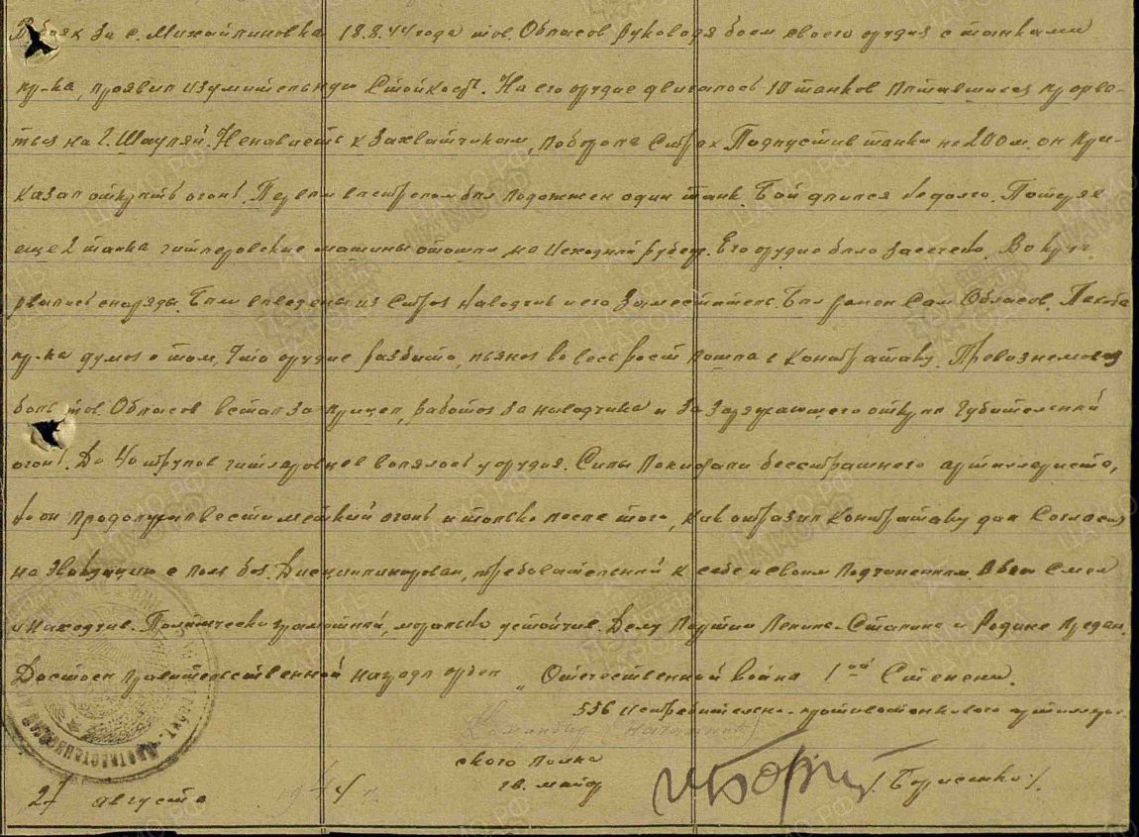 В боях за с. Михайлиновка 18.8.44 года тов. Обласов руководя боем своего орудия с танками
пр-ка, проявил изумительную стойкость. На его орудие двигалось 10 танков пытавшихся прорва-
ться на г. Шауляй. Ненависть к захватчикам, поборола страх. Подпустив танки на 200 м. он при-
казал открыть огонь. Первым выстрелом был подожжен один танк. Бой длился недолго. Потеряв
еще 2 танка гитлеровские машины отошли на исходный рубеж. Его орудие было засечено. Вокруг
рвались снаряды. Был выведены из строя наводчик и его заместитель. Был ранен сам Обласов. Пехота
пр-ка думая о том, что орудие разбито, пьяная во весь рост пошла в контратаку. Превозмогая
боль тов. Обласов встал за прицел, работая за наводчика и за заряжающего открыл губительный
огонь. До 40 трупов гитлеровцев валялось у орудия. Силы покидали бесстрашного артиллериста,
но он продолжал вести меткий огонь и только после того, как отразил контратаку дал согласие
на эвакуацию с поля боя. Дисциплинирован, требовательный к себе и своим подчиненным. В бою смел
и находчив. Политически грамотный, морально устойчив. Делу Партии Ленина-Сталина и Родине предан.
Достоен правительственной награды орден „Отечественной война 1ой степени.
556 истребительно-противотанкового артиллерий-
Командир (Начальник)
ского полка
гв. майор /Борисенко/
27 августа 1944 г.